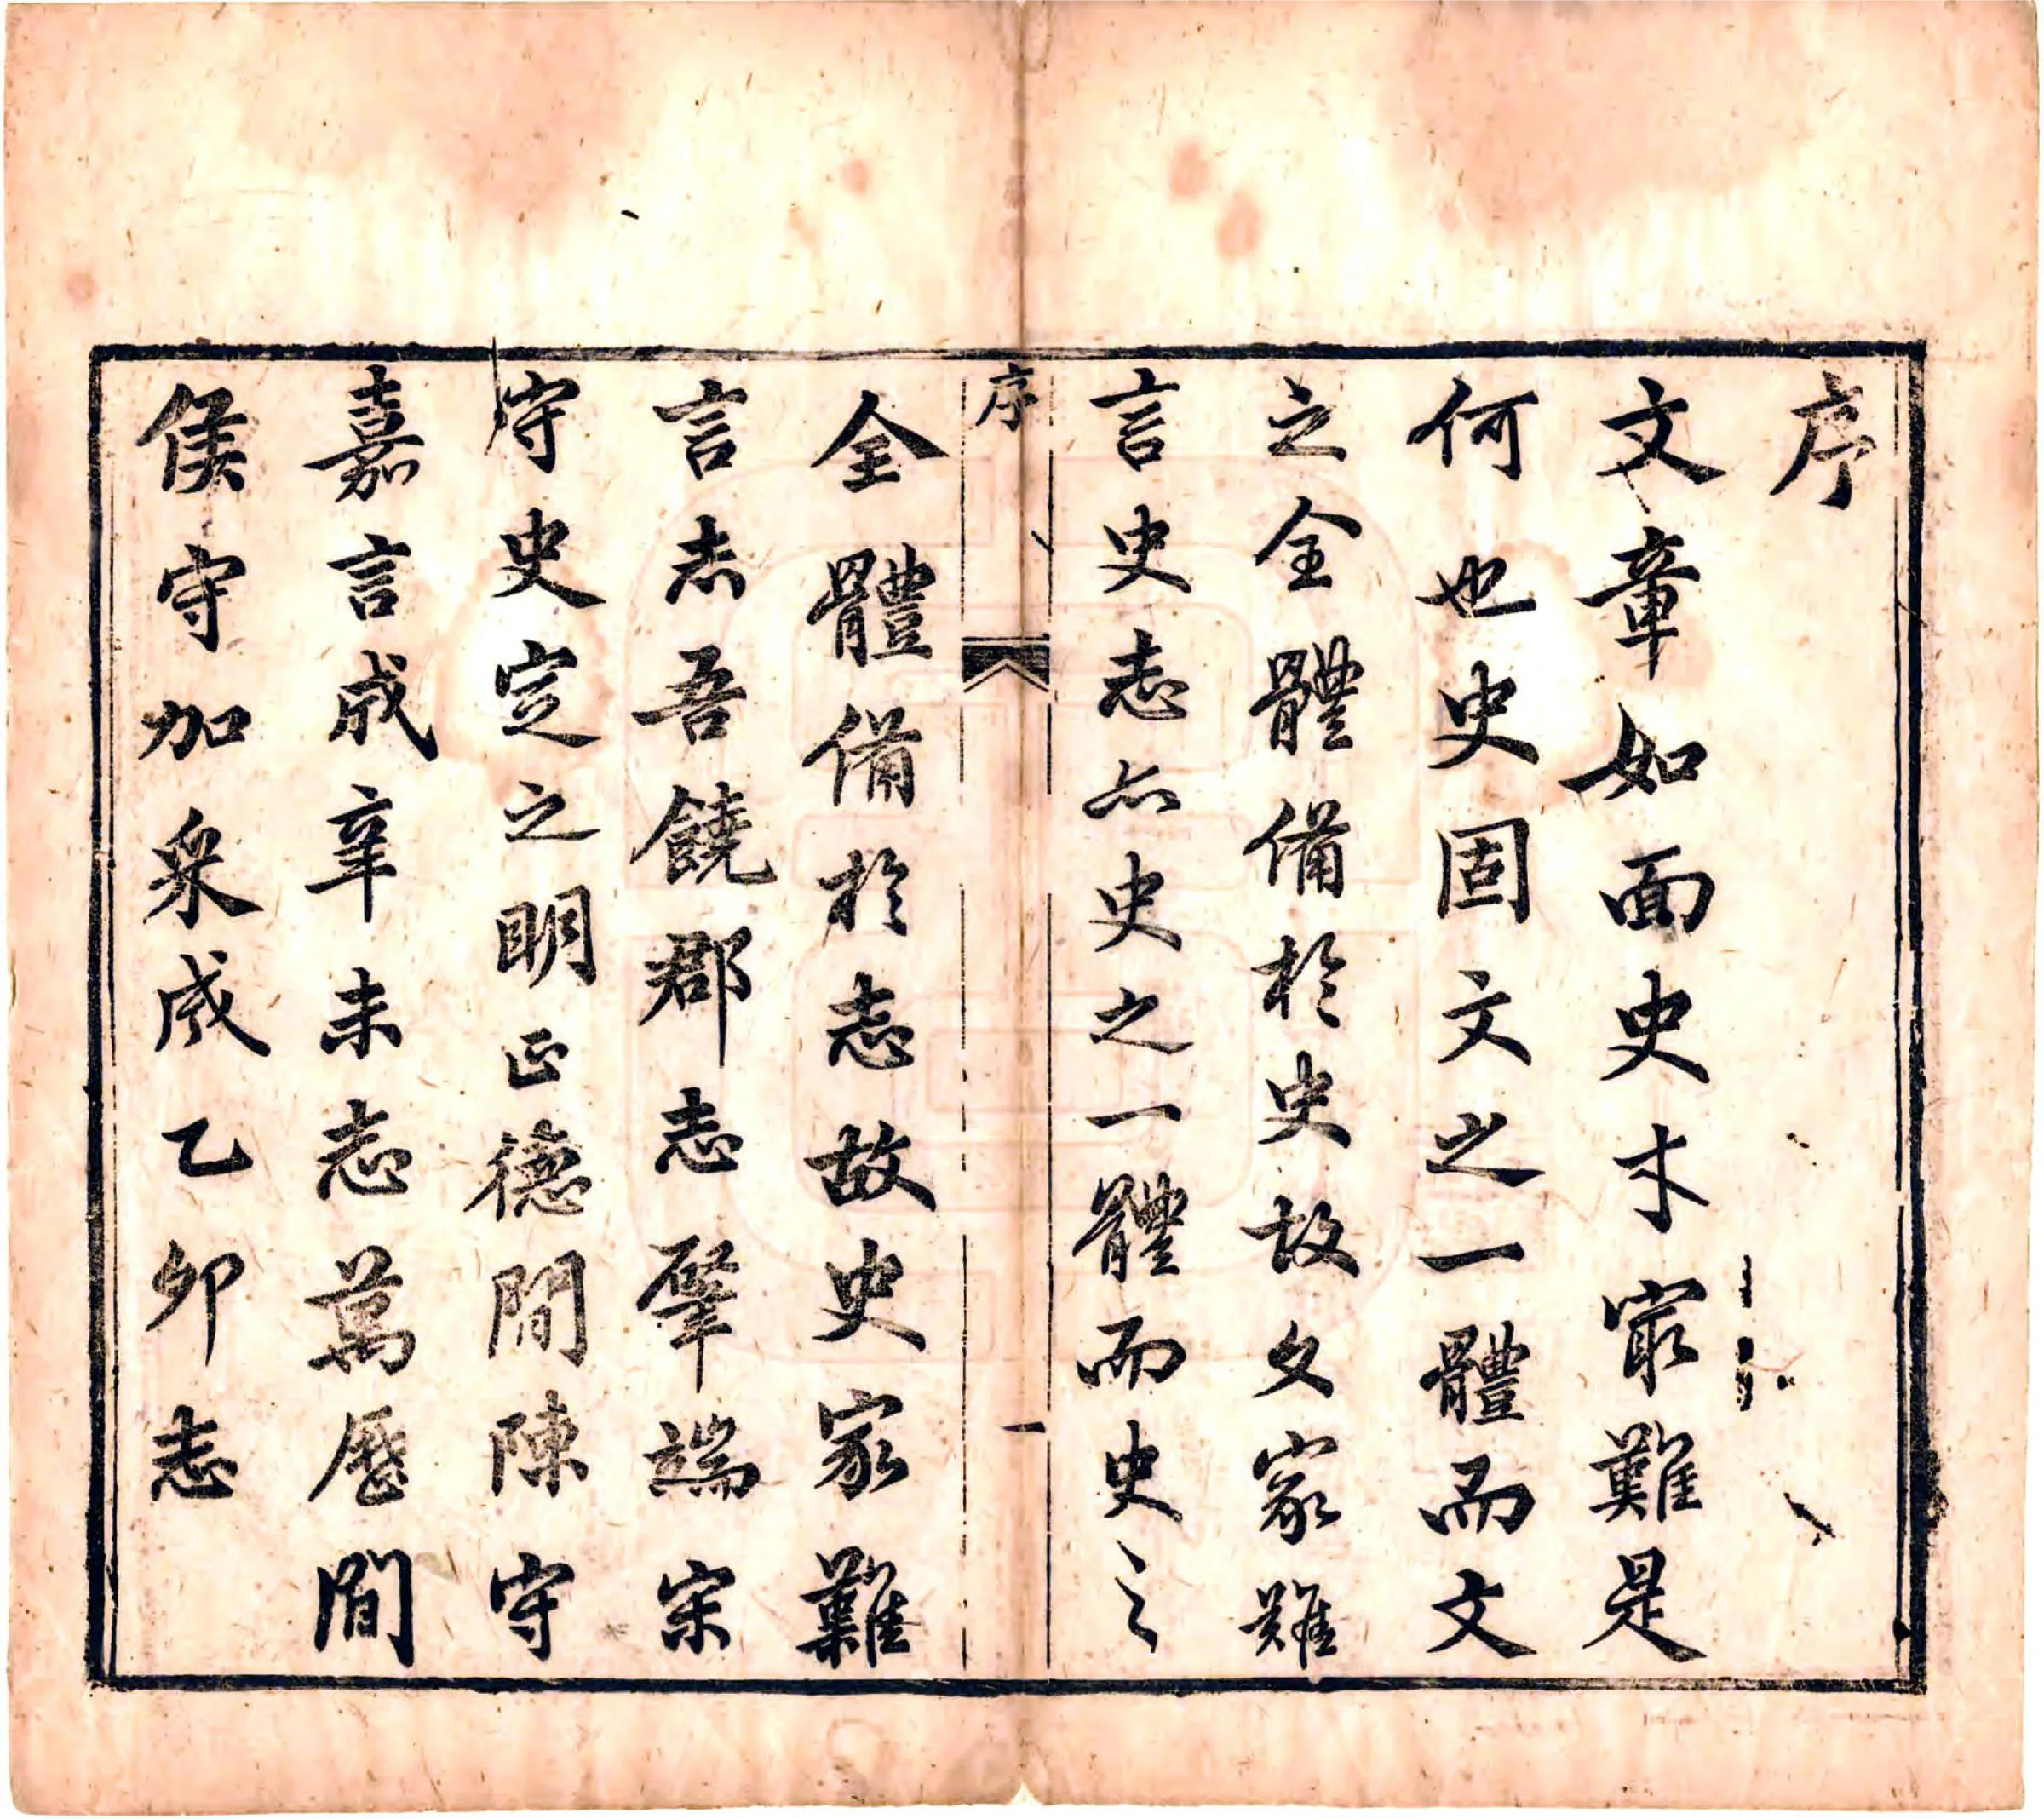 序
文章如面史才㝡難是
何也史固文之一體而文
之全體備於史故文家難
言史志亦史之一體而史之
序
一
全體備於志故史家難
言志吾饒郡志肇端宋
守史定之明正德間陳守
嘉言成辛未志萬曆間
侯守加采成乙卯志